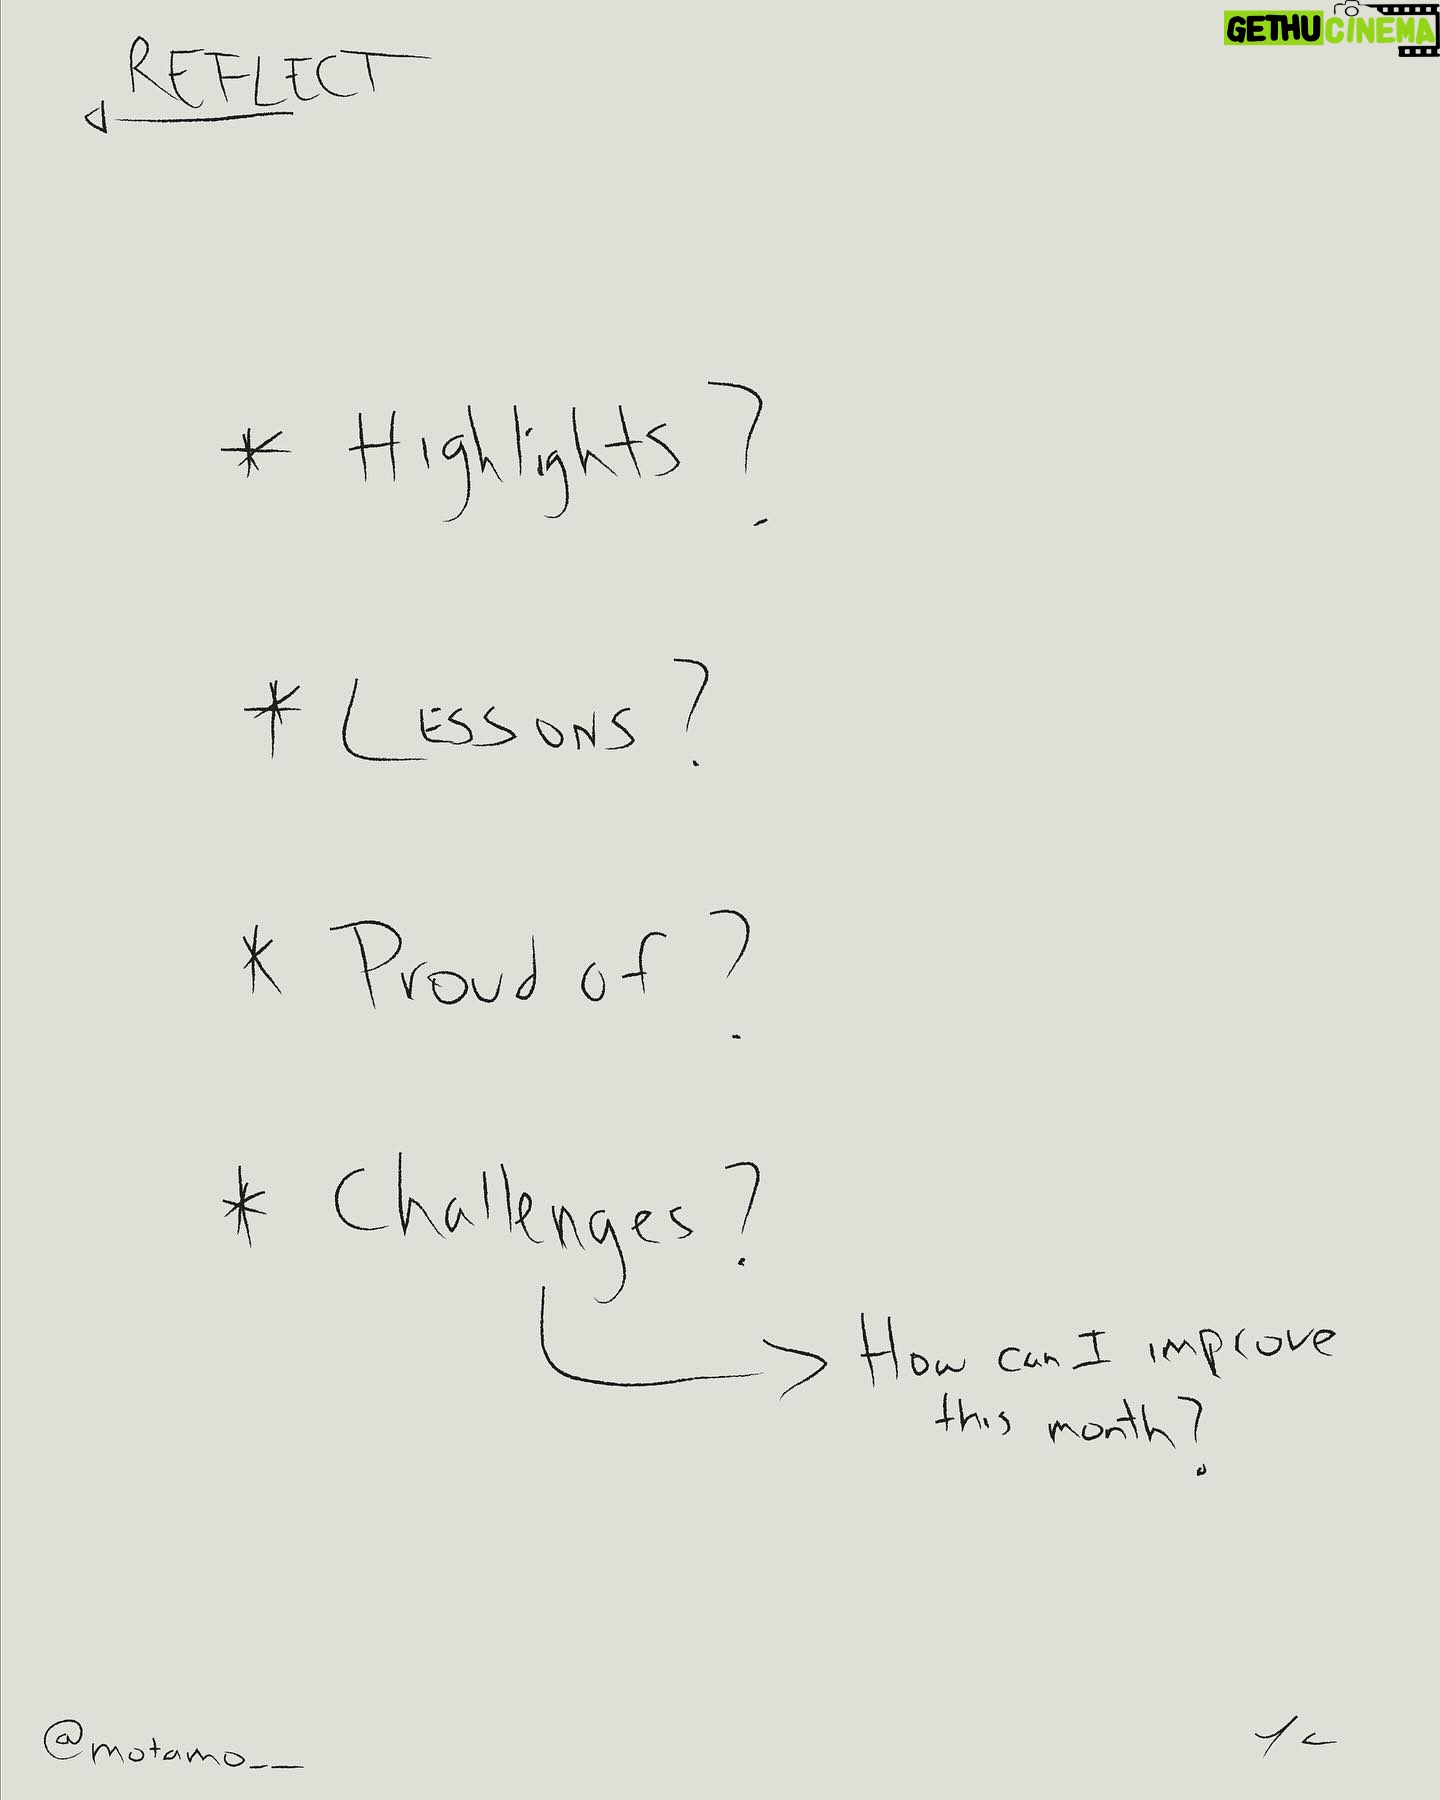 GETHUCINEMA
REFLECT
* Highlights?
* LESSONS?
* Proud of?
* Challenges?
How can I improve
this month?
@motamo__